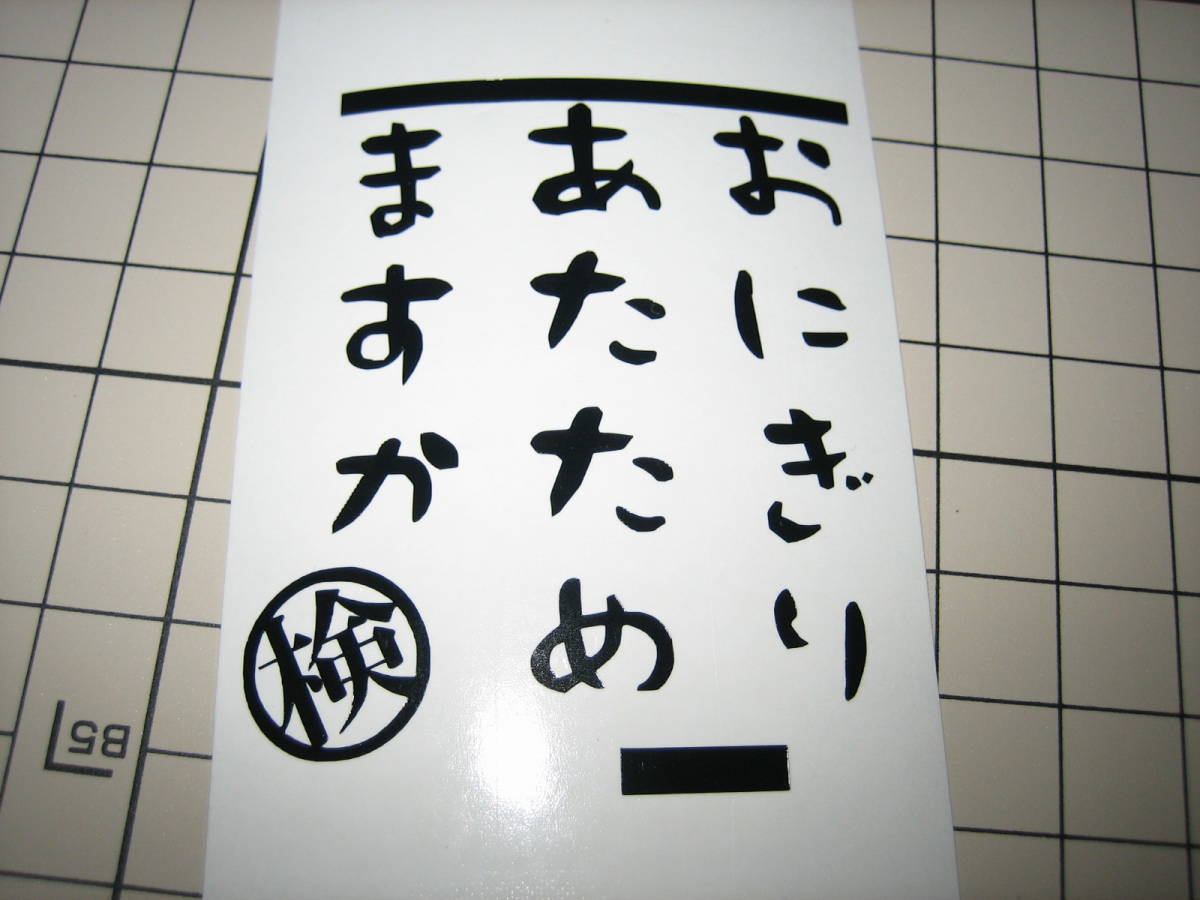 おにぎり
あたため
ますか
検
B5